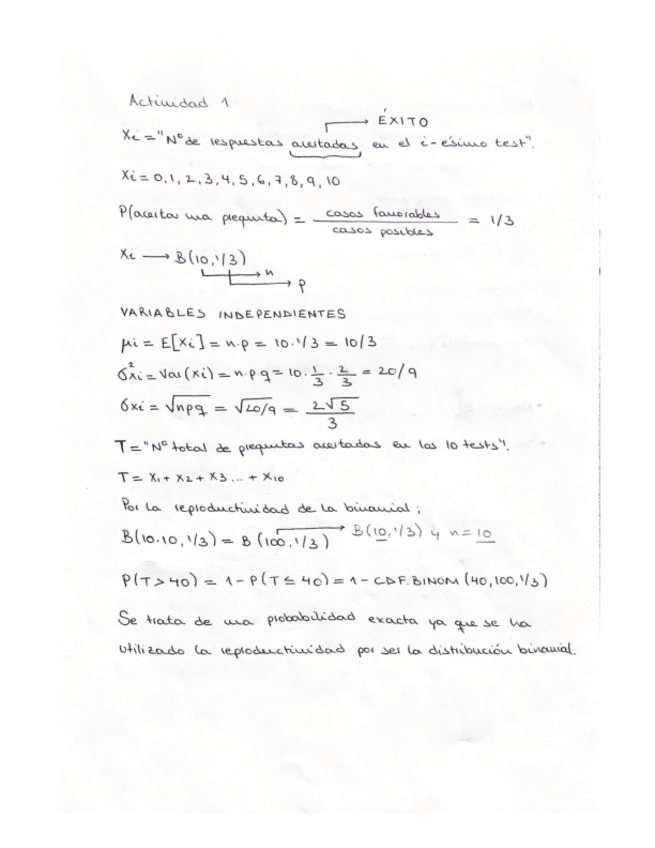 Actividad 1
ÉXITO
Xi = "Nº de respuestas acertadas en el i-ésimo test".
Xi = 0,1,2,3,4,5,6,7,8,9,10
P(acertar una pregunta) = casos favorables / casos posibles = 1/3
Xi → B(10,1/3)
n
p
VARIABLES INDEPENDIENTES
μi = E[Xi] = n.p = 10.1/3 = 10/3
σ²xi = Var(Xi) = n.p.q = 10.1/3 . 2/3 = 20/9
σxi = √npq = √20/9 = 2√5/3
T = "Nº total de preguntas acertadas en los 10 tests".
T = X1 + X2 + X3 ... + X10
Por la reproductividad de la binomial;
B(10.10,1/3) = B(100,1/3) → B(10,1/3) y n=10
P(T>40) = 1-P(T≤40) = 1-CDF.BINOM(40,100,1/3)
Se trata de una probabilidad exacta ya que se ha
utilizado la reproductividad por ser la distribución binomial.